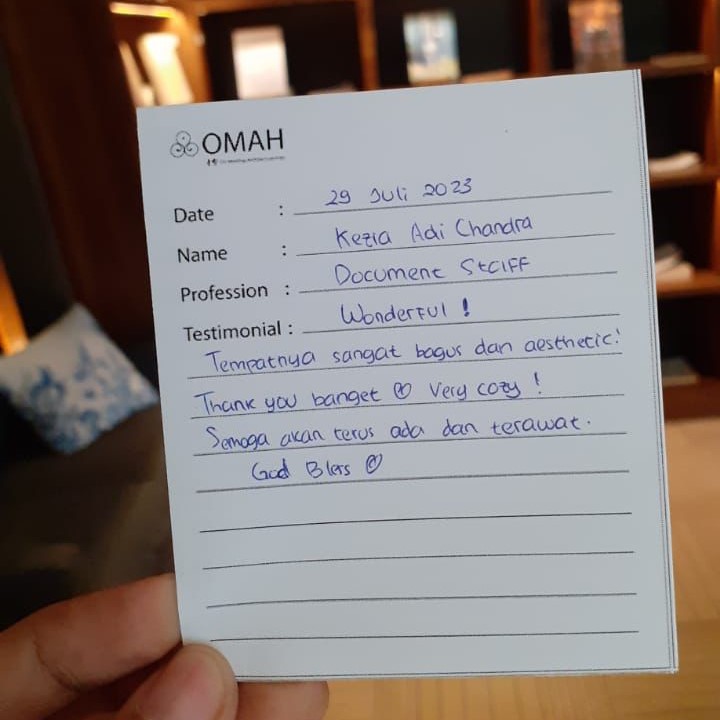 OMAH
Date : 29 Juli 2023
Name : Kezia Adi Chandra
Profession : Document Staff
Testimonial : Wonderful !
Tempatnya sangat bagus dan aesthetic!
Thank you banget Very cozy !
Semoga akan terus ada dan terawat.
God Bless